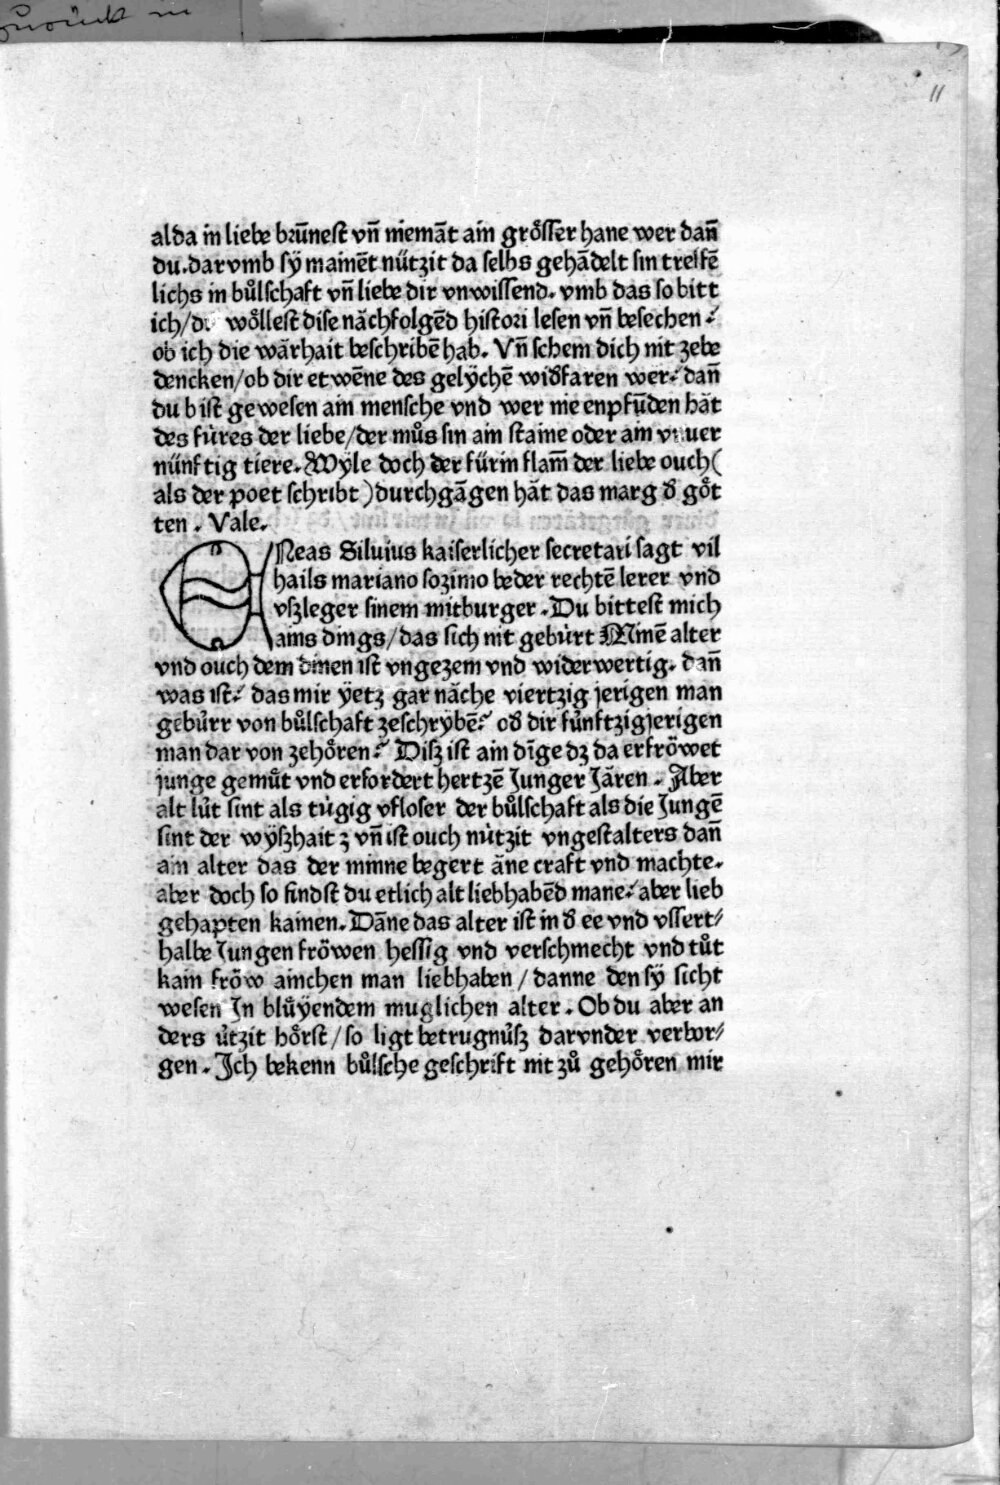 zurück in
11
alda in liebe bꝛūnest vn̄ niemāt ain grösser hane wer dan̄
du. dar vmb sÿ mainēt nützit da selbs gehādelt sin treffē
lichs in bůlschaft vn̄ liebe dir vnwissend. vmb das so bitt
ich/ wöllest dise nächfolgēd histoꝛi lesen vn̄ besechen⸵
ob ich die wärhait beschribē hab. Vn̄ schem dich nit zebe
dencken/ob dir etwēne des gelÿchē widfaren wer⸵ dan̄
du bist gewesen ain mensche vnd wer nie enpfūden hät
des fúres der liebe/der můs sin ain staine oder ain vnuer
nünftig tiere. Wÿle doch der fürin flam̄ der liebe ouch(
als der poet schribt)durchgāgen hät das marg d̛ göt
ten. Vale.
ENeas Siluius kaiserlicher secretari sagt vil
hails mariano sozimo beder rechtē lerer vnd
vszleger sinem mitburger. Du bittest mich
ains dings/das sich nit gebúrt Minē alter
vnd ouch dem dinen ist vngezem vnd widerwertig. dan̄
was ist⸵ das mir ÿetz gar näche viertzig jerigen man
gebürr von bůlschaft zeschrÿbē⸵ ob dir fünftzigjerigen
man dar von zehören⸵ Disz ist ain dīge dz da erfröwet
junge gemüt vnd erfordert hertzē Junger Jären. Aber
alt lút sint als túgig vfloser der bůlschaft als die Jungē
sint der wÿszhait ꝫ vn̄ ist ouch nützit vngestalters dan̄
ain alter das der minne begert äne craft vnd machte.
aber doch so findst du etlich alt liebhabēd mane⸵ aber lieb
gehapten kainen. Dāne das alter ist in d̛ ee vnd vssert⸗
halbe Jungen fröwen hessig vnd verschmecht vnd tůt
kain fröw ainchen man liebhaben/danne den sÿ sicht
wesen Jn blůÿendem muglichen alter. Ob du aber an
ders útzit hörst/so ligt betrugnúsz darvnder verbor⸗
gen. Jch bekenn bůlsche geschrift nit zů gehören mir